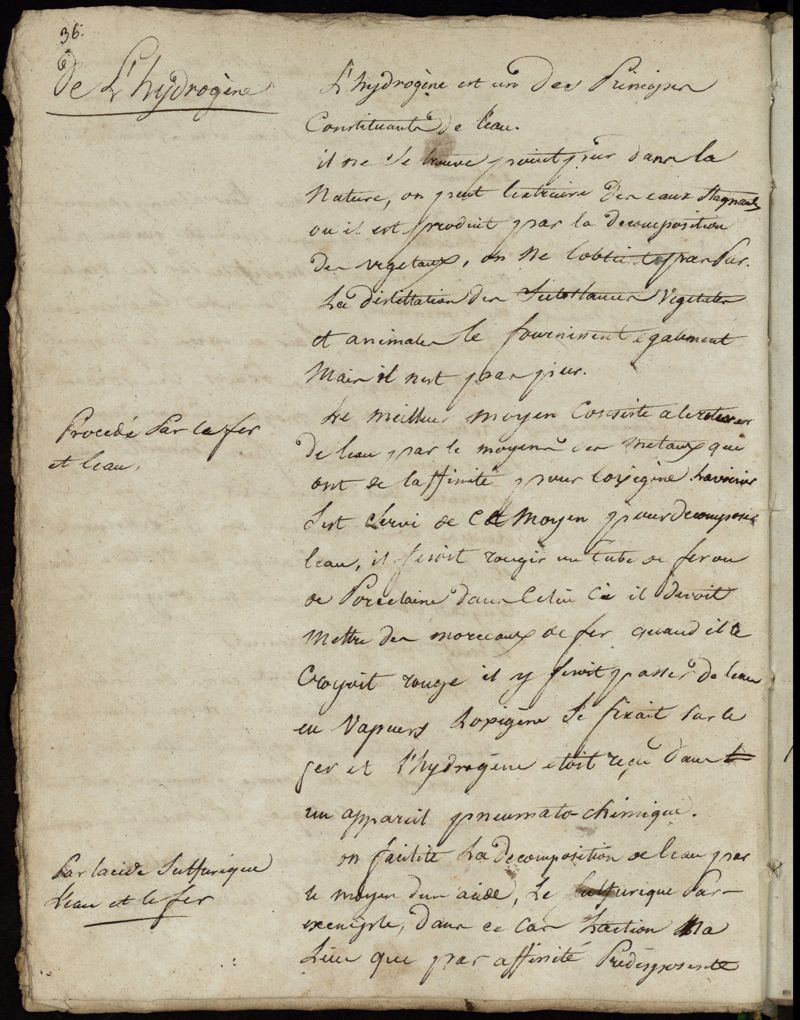 36.
de L'hydrogène
L'hydrogène est un des Principes
Constituants de l'eau.
il ne se trouve point pur dans la
Nature, on peut l'extraire des eaux stagnantes
ou il est produit par la decomposition
des vegetaux, on ne l'obtient pas Pur.
La distillation des Substances Vegetales
et animales le fournissent egalement
Mais il n'est pas pur.
Procédé Par le fer
et l'eau.
Le Meilleur moyen Consiste a le retirer
de l'eau par le moyen des Metaux que
ont de l'affinité pour l'oxigène Lavoisier
s'est servi de Ce Moyen pour decomposer
l'eau, il fesoit rougir un tube de fer ou
de Porcelaine dans Celui Ci il devoit
Mettre des morceaux de fer quand il le
Croyoit rouge il y fesoit passer de l'eau
en Vapeurs L'oxigène Se fixait Sur le
fer et l'hydrogène etoit reçu dans
un appareil pneumato-chimique.
Par l'acide Sulfurique
l'eau et le fer
on facilite La decomposition de l'eau par
le moyen d'un acide, Le Sulfurique Par-
exemple, dans ce cas L'action n'a
Lieu que par affinité Prédisposante